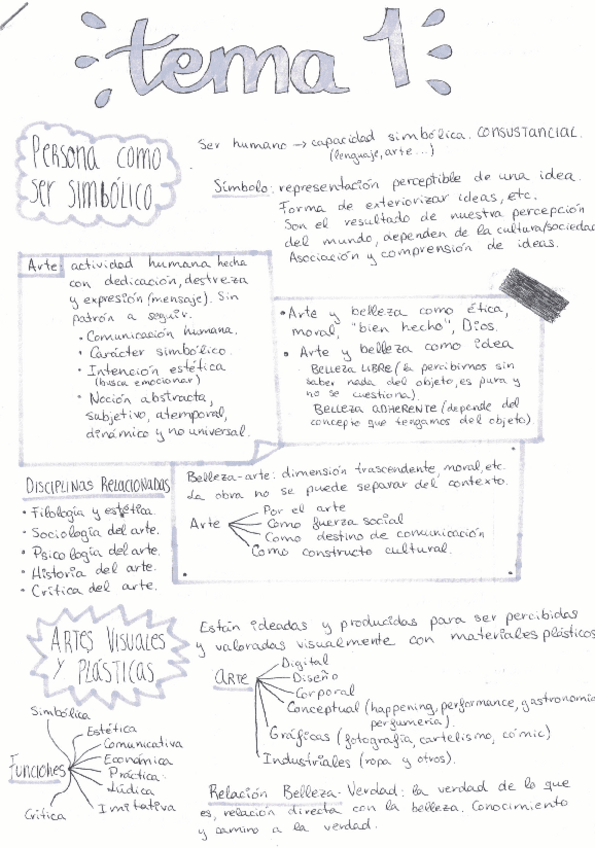 tema 1
PERSONA COMO
SER SIMBÓLICO
Ser humano → capacidad simbólica. CONSUSTANCIAL.
(lenguaje, arte...)
Símbolo: representación perceptible de una idea.
Forma de exteriorizar ideas, etc.
Son el resultado de nuestra percepción
del mundo, dependen de la cultura/sociedad
Asociación y comprensión de ideas.
Arte: actividad humana hecha
con dedicación, destreza
y expresión (mensaje). Sin
patrón a seguir.
• Comunicación humana.
• Carácter simbólico.
• Intención estética
(busca emocionar)
• Noción abstracta,
subjetivo, atemporal,
dinámico y no universal.
• Arte y belleza como ética,
moral, "bien hecho", Dios.
• Arte y belleza como idea
BELLEZA LIBRE (la percibimos sin
saber nada del objeto, es pura y
no se cuestiona).
BELLEZA ADHERENTE (depende del
concepto que tengamos del objeto).
DISCIPLINAS RELACIONADAS
• Filología y estética.
• Sociología del arte.
• Psicología del arte.
• Historia del arte.
• Crítica del arte.
Belleza-arte: dimensión trascendente, moral, etc.
La obra no se puede separar del contexto.
Arte
Por el arte
Como fuerza social
Como destino de comunicación
Como constructo cultural.
ARTES VISUALES
Y PLÁSTICAS
Están ideadas y producidas para ser percibidas
y valoradas visualmente con materiales plásticos
ARTE
Digital
Diseño
Corporal
Conceptual (happening, performance, gastronomía
perfumería).
Gráficas (fotografía, cartelismo, cómic)
Industriales (ropa y otros).
Funciones
Simbólica
Estética
Comunicativa
Económica
Práctica
Lúdica
Imitativa
Crítica
Relación Belleza-Verdad: la verdad de lo que
es, relación directa con la belleza. Conocimiento
y camino a la verdad.